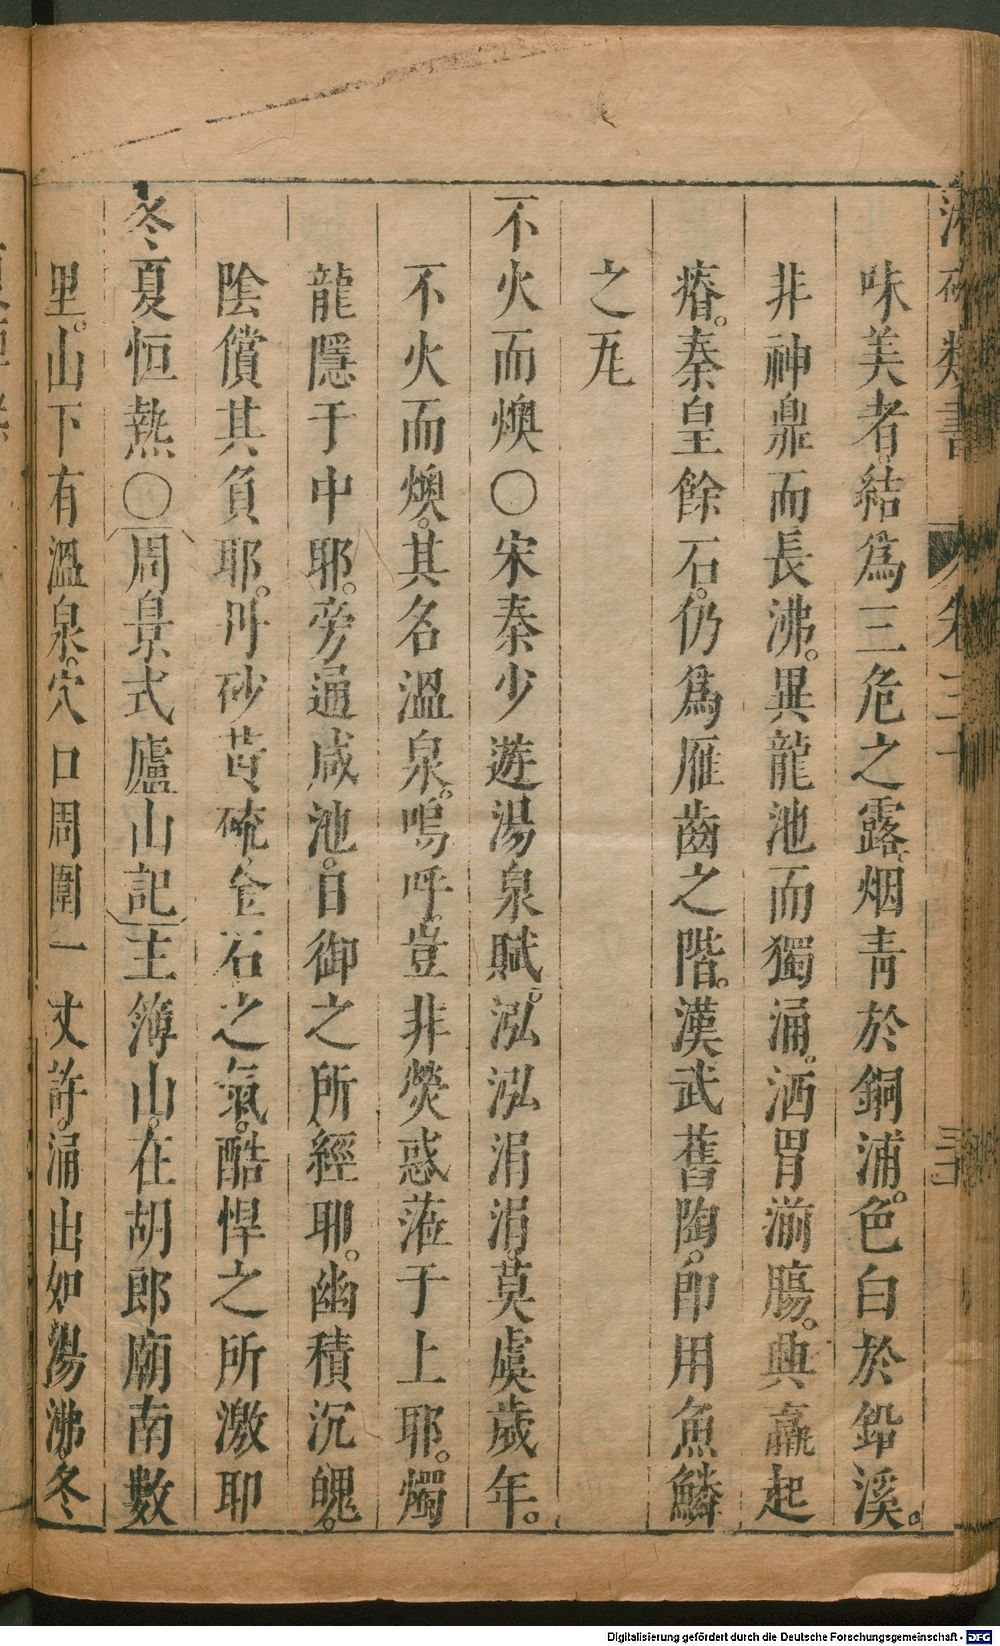 味美者結爲三危之露烟靑於銅浦。色白於鉛溪。
非神鼎而長沸。異龍池而獨涌。洒胃湔腸。興羸起
瘠。秦皇餘石。仍爲雁齒之階。漢武舊陶。卽用魚鱗
之㼚
不火而燠〇宋秦少遊湯泉賦。泓泓涓涓。莫虞歲年。
不火而燠。其名溫泉。嗚呼。豈非熒惑蒞于上耶。燭
龍隱于中耶。旁通咸池。日御之所經耶。幽積沉魄。
陰償其負耶。丹砂黃硫金石之氣。酷悍之所激耶
冬夏恒熱〇周景式廬山記主簿山。在胡郎廟南數
里。山下有溫泉。穴口周圍一丈許。涌出如湯沸冬
類書
卷三十
Digitalisierung gefördert durch die Deutsche Forschungsgemeinschaft - DFG